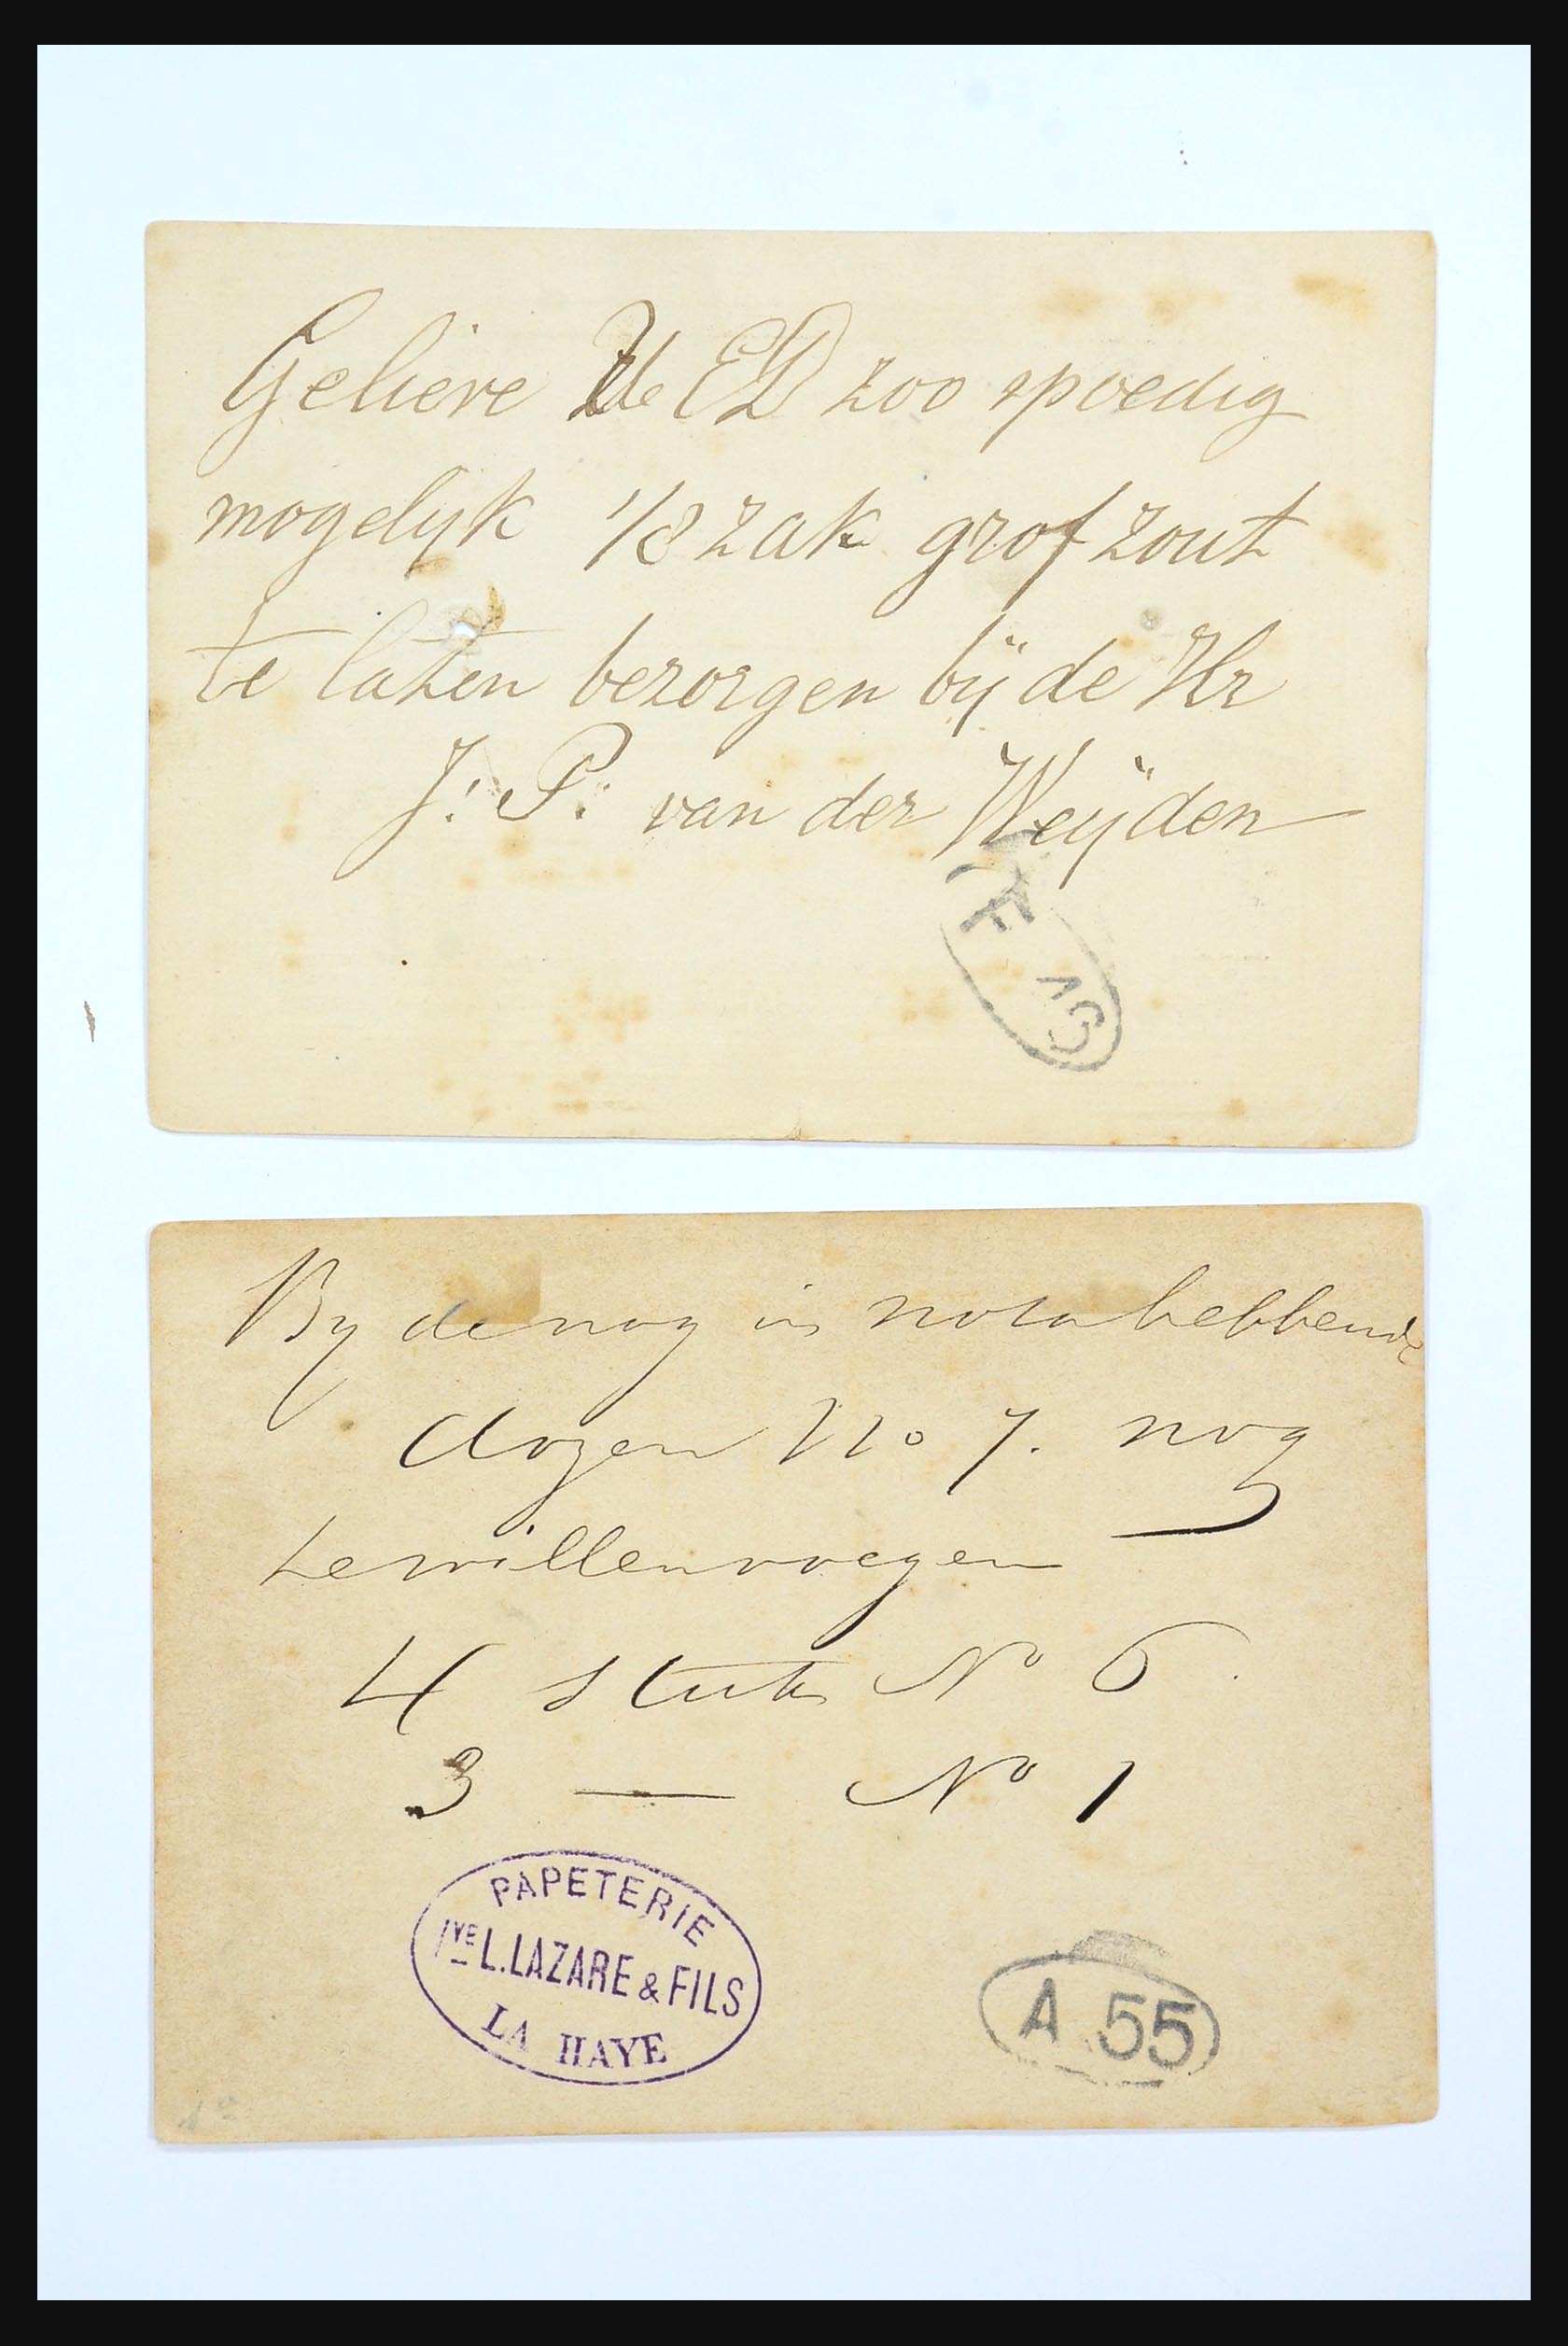 Geliere UE ED zoo spoedig
mogelijk 1/8 zak grof zout
te laten bezorgen bij de Hr
J. P. van der Weijden
By de nog in nota hebbende
dozen No 7. nog
te willen voegen
4 stuks No 6.
3 — No 1
PAPETERIE
Vve L. LAZARE & FILS
LA HAYE
A 55